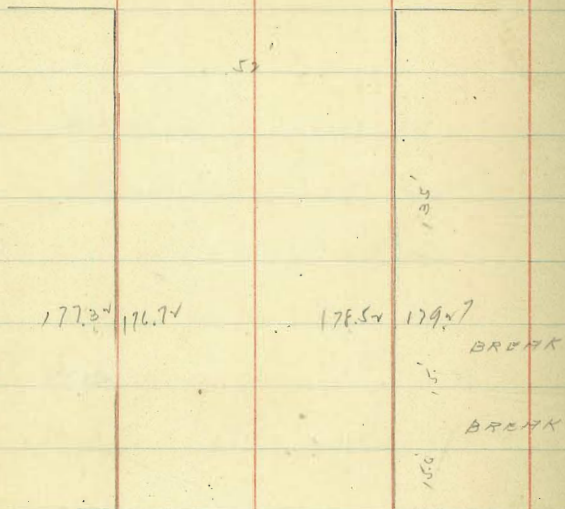 52'
135'
177.3 176.7 178.5 179.7
BREAK
15'
BREAK
150'